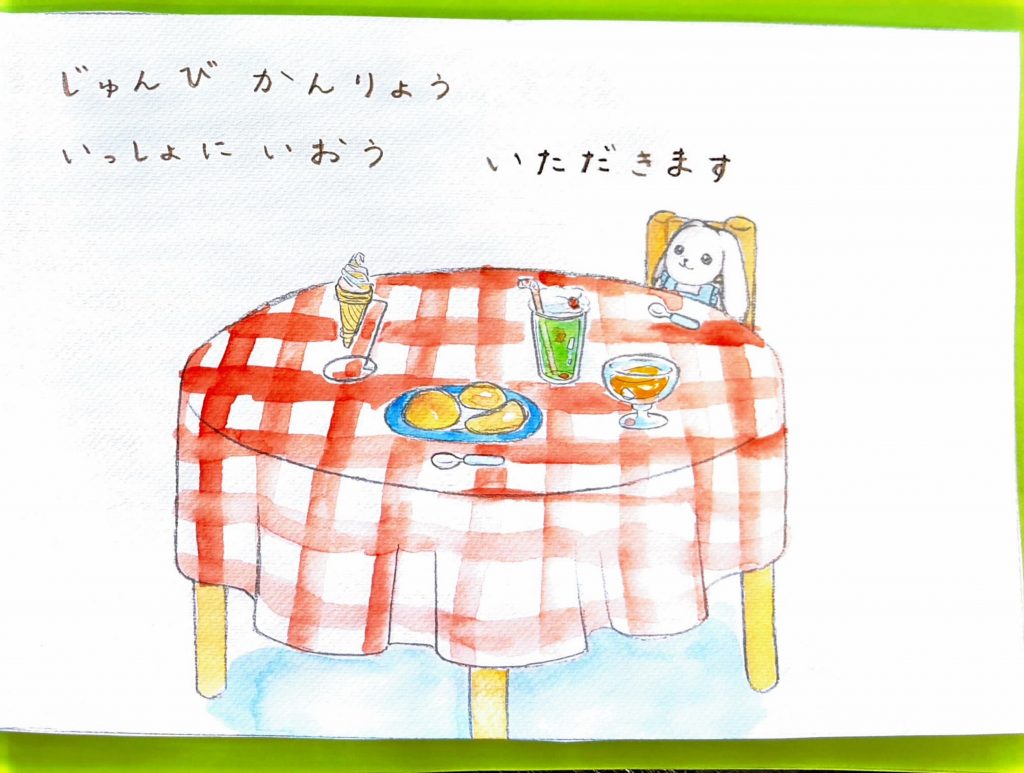 じゅんび かんりょう
いっしょに いおう いただきます